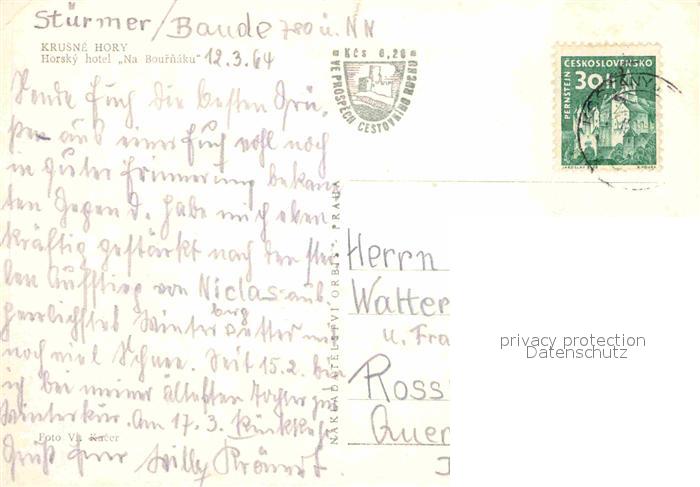 Stürmer/Baude 780 ü. NN
KRUŠNÉ HORY
Horský hotel „Na Bouřňáku" 12.3.64
Sende Euch die besten Grü-
ße aus einer Euch wohl noch
in guter Erinnerung bekan
ten Gegend. Habe mich eben
kräftig gestärkt nach den stei
len Aufstieg von Niclasberg aus
herrlichstes Winterwetter
noch viel Schnee. Seit 15.2. bin
ich bei meiner ältesten Tochter zur
Winterkur. Am 17.3. Rückkehr
Foto Vl. Kačer
Gruß Euer Willy
Kčs 0,20
VE PROSPĚCH CESTOVNÍHO RUCHU
NAKLADATELSTVÍ ORBIS, PRAHA
ČESKOSLOVENSKO
30 h
PERNŠTEJN
Herrn
Walter
u. Fra
Ross
Quer
privacy protection
Datenschutz